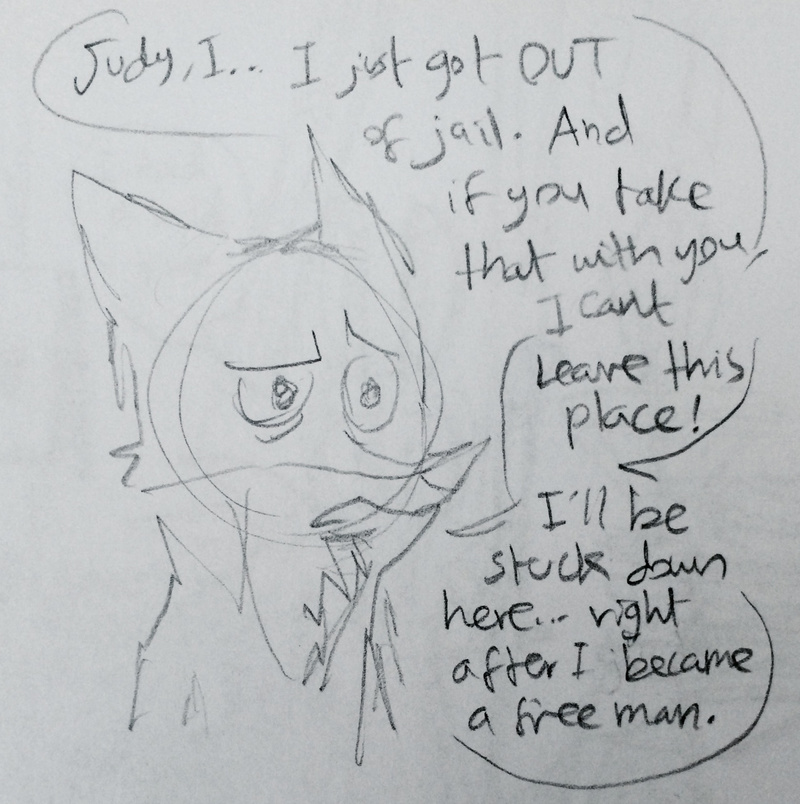 Judy, I... I just got OUT
of jail. And
if you take
that with you,
I cant
Leave this
place!
I'll be
stuck down
here... right
after I became
a free man.